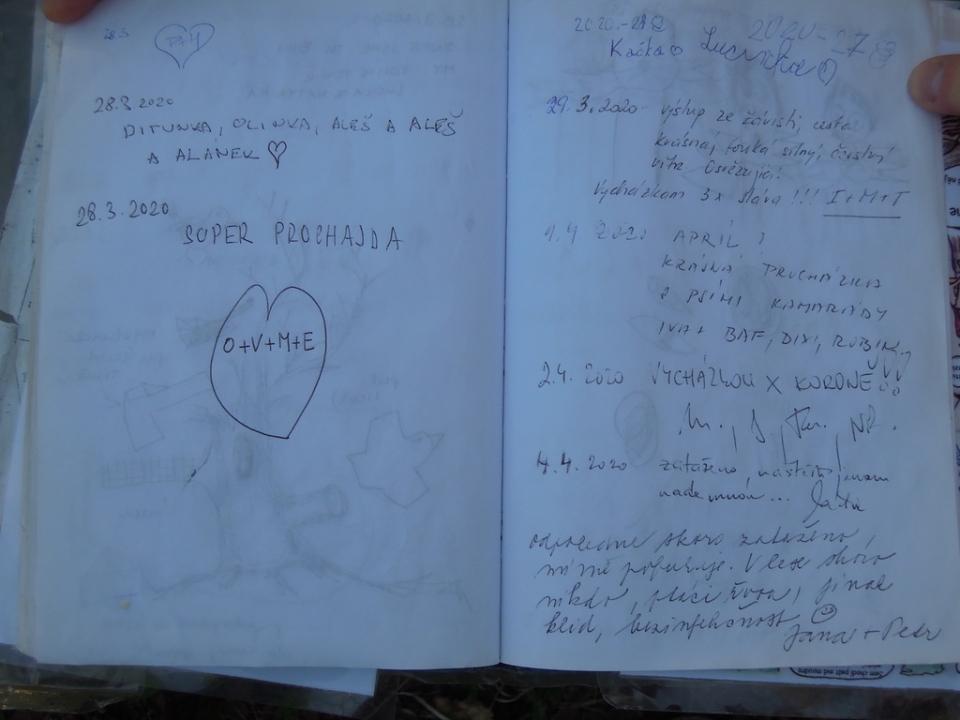 28.3
P+H
28.3 2020
DITUNKA, OLINKA, ALEŠ A ALEŠ
A ALÁNEK ♡
28.3.2020
SUPER PROCHAJDA
O+V+M+E
2020.-28
2020-27
Kačka Lucinka
29.3.2020 výstup ze závisti, cesta
krásná, fouká silný, čerstvý
vítr. Osvěžující!
Vycházkám 3x sláva!!! I+M+T
1.4 2020 APRÍL!
KRÁSNÁ PROCHÁZKA
S PSÍMI KAMARÁDY
IVA+ BAF, DIXI, RUBIN
2.4. 2020 VYCHÁZKOU X KORONĚ!!!
4.4.2020 zataženo, naštěstí jenom
nade mnou...
odpoledne skoro zataženo,
mírně pofukuje. V lese skoro
nikdo, ptáci řvou, jinak
klid, bezinfekčnost 🙂
Jana + Petr